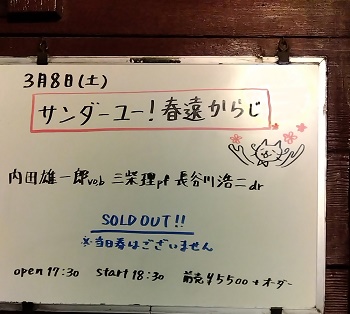 3月8日(土)
サンダーユー!春遠からじ
内田雄一郎vob 三柴理pf 長谷川浩二dr
SOLD OUT!!
※当日券はございません
open 17:30 start 18:30 前売¥5500+オーダー